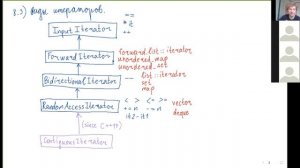 8.3) Виды итераторов.
Input Iterator
==
*it
++
Forward Iterator
forward_list::iterator
unordered_map
unordered_set
Bidirectional Iterator
--
list::iterator
set
map
RandomAccessIterator
< > <= >=
+= n -= n
it2 - it1
vector
deque
(since C++17)
Contiguous Iterator